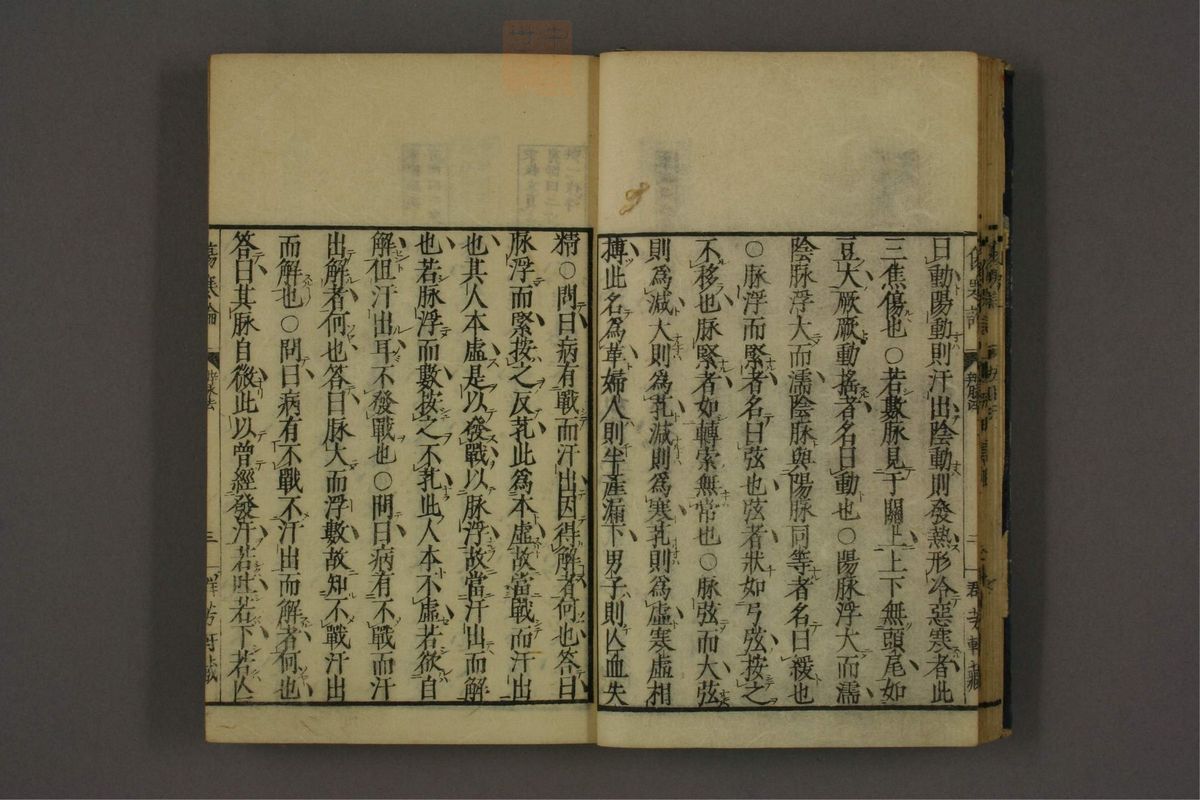 曰動陽動則汗出陰動則發熱形冷惡寒者此
三焦傷也○若數脉見于關上上下無頭尾如
豆大厥厥動搖者名曰動也○陽脉浮大而濡
陰脉浮大而濡陰脉與陽脉同等者名曰緩也
○脉浮而緊者名曰弦也弦者狀如弓弦按之
不移也脉緊者如轉索無常也○脉弦而大弦
則為減大則為芤減則為寒芤則為虛寒虛相
搏此名為革婦人則半產漏下男子則亾血失
精○問曰病有戰而汗出因得解者何也答曰
脉浮而緊按之反芤此為本虛故當戰而汗出
也其人本虛是以發戰以脉浮故當汗出而解
也若脉浮而數按之不芤此人本不虛若欲自
解但汗出耳不發戰也○問曰病有不戰而汗
出解者何也答曰脉大而浮數故知不戰汗出
而解也○問曰病有不戰不汗出而解者何也
答曰其脉自微此以曾經發汗若吐若下若亾
傷寒論
辨脉法
三